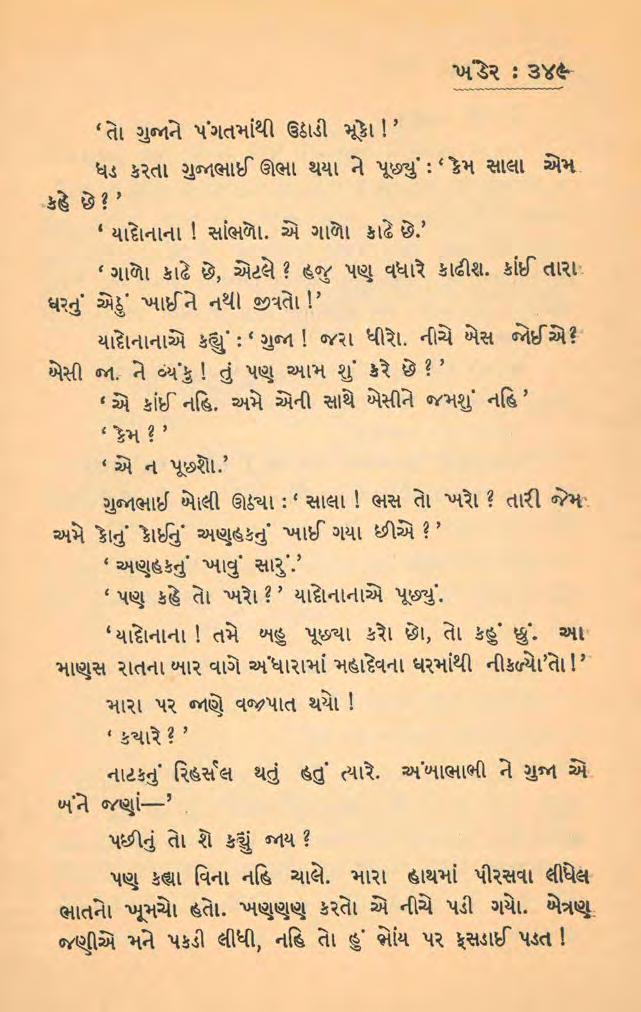 ખંડેર : ૩૪૯
‘ તો ગુજાને પંગતમાંથી ઉઠાડી મૂકો ! ’
ધડ કરતા ગુજાભાઈ ઊભા થયા ને પૂછ્યું : ‘ કેમ સાલા એમ
કહે છે ? ’
‘ યાદોનાના ! સાંભળો. એ ગાળો કાઢે છે.’
‘ ગાળો કાઢે છે, એટલે ? હજુ પણ વધારે કાઢીશ. કાંઈ તારા
ઘરનું એઠું ખાઈને નથી જીવતો !’
યાદોનાનાએ કહ્યું : ‘ ગુજા ! જરા ધીરો. નીચે બેસ જોઈએ ?
બેસી જા. ને વ્યંકુ ! તું પણ આમ શું કરે છે ? ’
‘ એ કાંઈ નહિ. અમે એની સાથે બેસીને જમશું નહિ ’
‘ કેમ ? ’
‘ એ ન પૂછશો.’
ગુજાભાઈ બોલી ઊઠ્યા : ‘ સાલા ! ભસ તો ખરો ? તારી જેમ
અમે કોનું કોઈનું અણહકનું ખાઈ ગયા છીએ ? ’
‘ અણહકનું ખાવું સારું.’
‘ પણ કહે તો ખરો ? ’ યાદોનાનાએ પૂછ્યું.
‘યાદોનાના ! તમે બહુ પૂછ્યા કરો છો, તો કહું છું. આ
માણસ રાતના બાર વાગે અંધારામાં મહાદેવના ઘરમાંથી નીકળ્યો'તો !’
મારા પર જાણે વજ્રપાત થયો !
‘ ક્યારે ? ’
નાટકનું રિહર્સલ થતું હતું ત્યારે. અંબાભાભી ને ગુજા એ
બંને જણાં—’
પછીનું તો શે કહ્યું જાય ?
પણ કહ્યા વિના નહિ ચાલે. મારા હાથમાં પીરસવા લીધેલ
ભાતનો ખૂમચો હતો. ખણણણ કરતો એ નીચે પડી ગયો. બેત્રણ
જણીએ મને પકડી લીધી, નહિ તો હું ભોંય પર ફસડાઈ પડત !